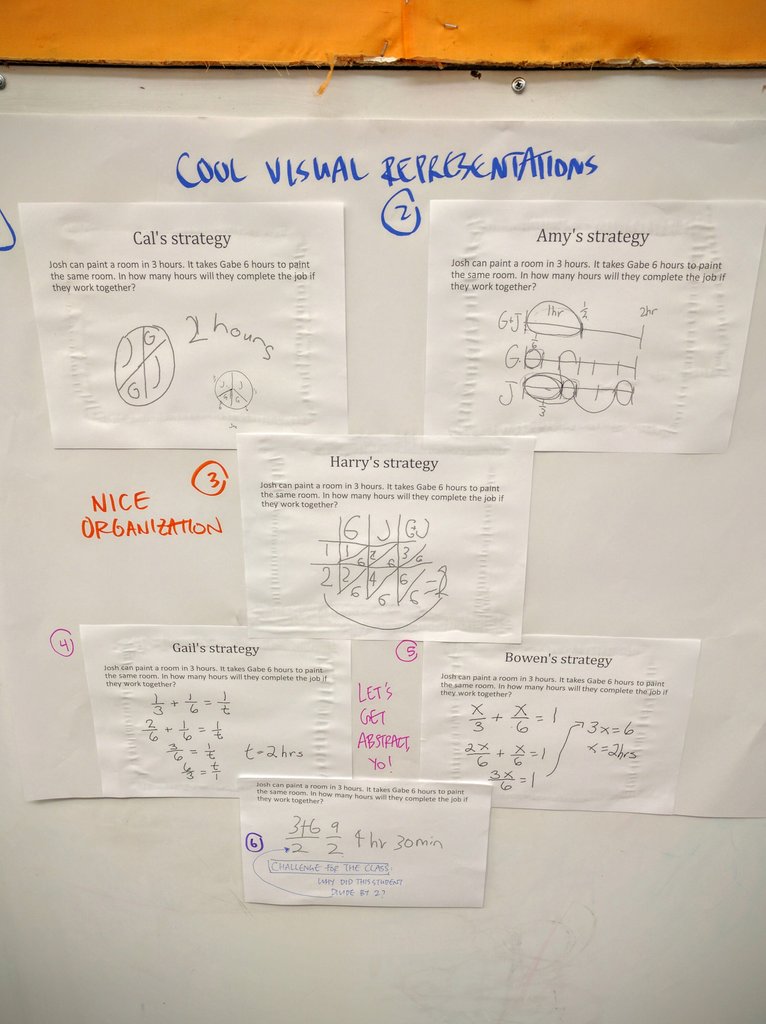 COOL VISUAL REPRESENTATIONS
2
Cal's strategy
Josh can paint a room in 3 hours. It takes Gabe 6 hours to paint
the same room. In how many hours will they complete the job if
they work together?
J G
G J
2 hours
J J
G G
Amy's strategy
Josh can paint a room in 3 hours. It takes Gabe 6 hours to paint
the same room. In how many hours will they complete the job if
they work together?
1hr 1/2 2hr
G+J
1/6
G
J
1/3
3
NICE
ORGANIZATION
Harry's strategy
Josh can paint a room in 3 hours. It takes Gabe 6 hours to paint
the same room. In how many hours will they complete the job if
they work together?
G J G+J
1 1/6 2/6 3/6
2 2/6 4/6 6/6 =
4
Gail's strategy
Josh can paint a room in 3 hours. It takes Gabe 6 hours to paint
the same room. In how many hours will they complete the job if
they work together?
1/3 + 1/6 = 1/t
2/6 + 1/6 = 1/t
3/6 = 1/t
6/3 = t/1
t=2hrs
LET'S
GET
ABSTRACT,
YO!
5
Bowen's strategy
Josh can paint a room in 3 hours. It takes Gabe 6 hours to paint
the same room. In how many hours will they complete the job if
they work together?
x/3 + x/6 = 1
2x/6 + x/6 = 1
3x/6 = 1
3x=6
x=2hrs
Josh can paint a room in 3 hours. It takes Gabe 6 hours to paint
the same room. In how many hours will they complete the job if
they work together?
6
3+6/2 9/2 4 hr 30min
CHALLENGE FOR THE CLASS:
WHY DID THIS STUDENT
DIVIDE BY 2?